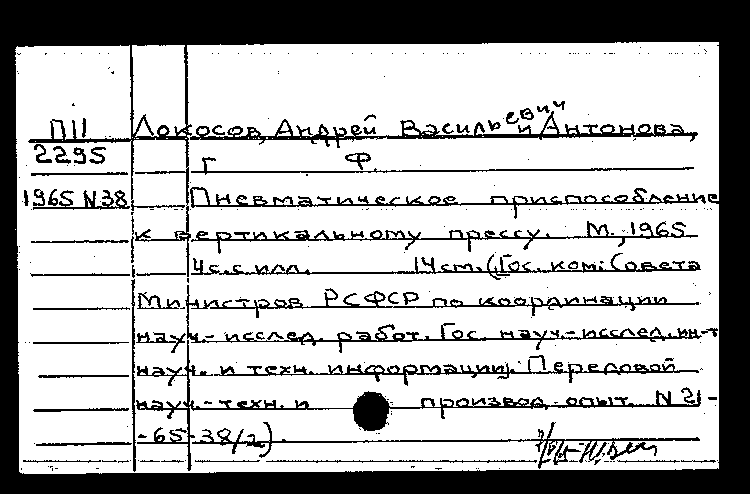 П11 Локосов, Андрей Васильевич и Антонова,
2295 Г Ф.
1965 N38 Пневматическое приспособление
к вертикальному прессу. М., 1965
4с. с илл. 14 см. (Гос. ком. Совета
Министров РСФСР по координации
науч.-исслед. работ. Гос. науч.-исслед. ин-т
науч. и техн. информации). Передовой
науч.-техн. и производ. опыт. N 21-
-65-38/2).